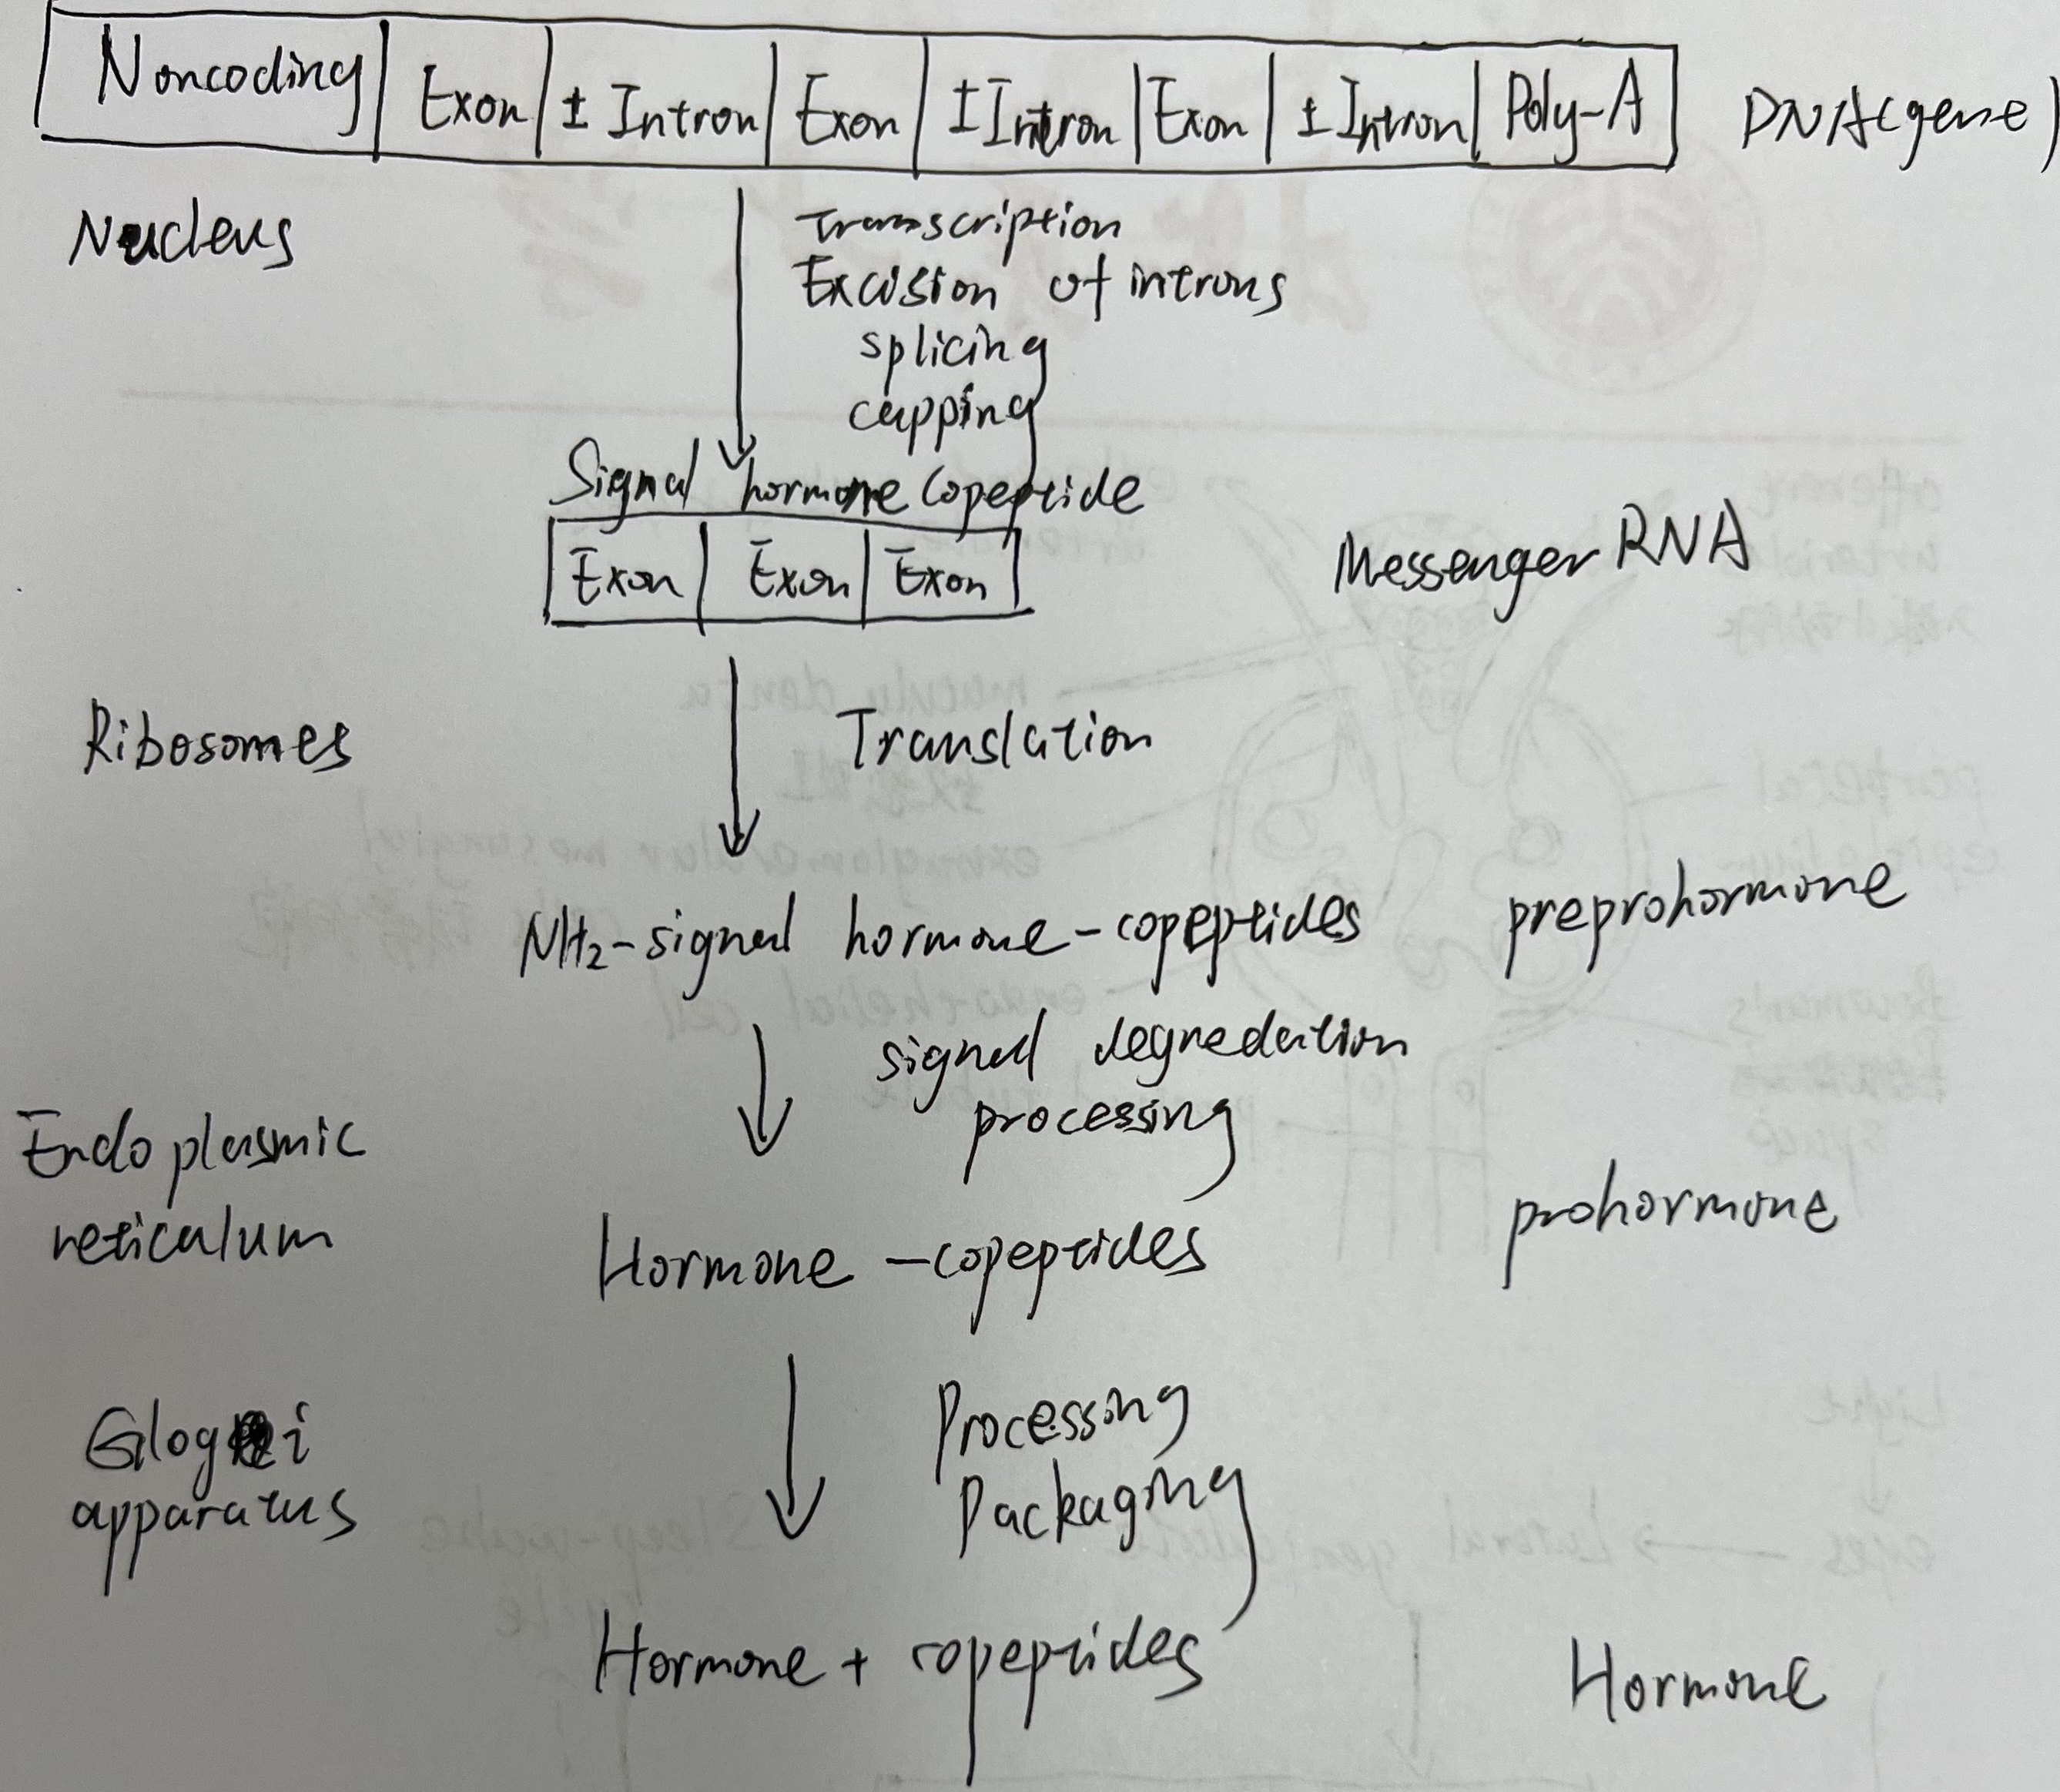 Noncoding Exon ± Intron Exon ± Intron Exon ± Intron Poly-A DNA(gene)
Nucleus
Transcription
Excision of introns
splicing
capping
Signal hormone copeptide
Exon Exon Exon
Messenger RNA
Ribosomes
Translation
NH2-signal hormone-copeptides preprohormone
signal degredation
processing
Endoplasmic
reticulum
Hormone -copeptides prohormone
Processing
Packaging
apparatus
Hormone + copeptides Hormone